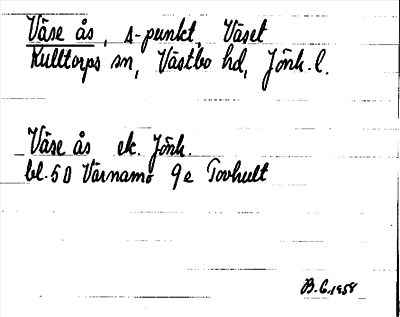 Våse ås, △-punkt, Våset
Kulltorps sn, Västbo hd, Jönk. l.
Våse ås ek. Jönk.
bl. 50 Värnamo 9e Tovhult
B.G. 1958